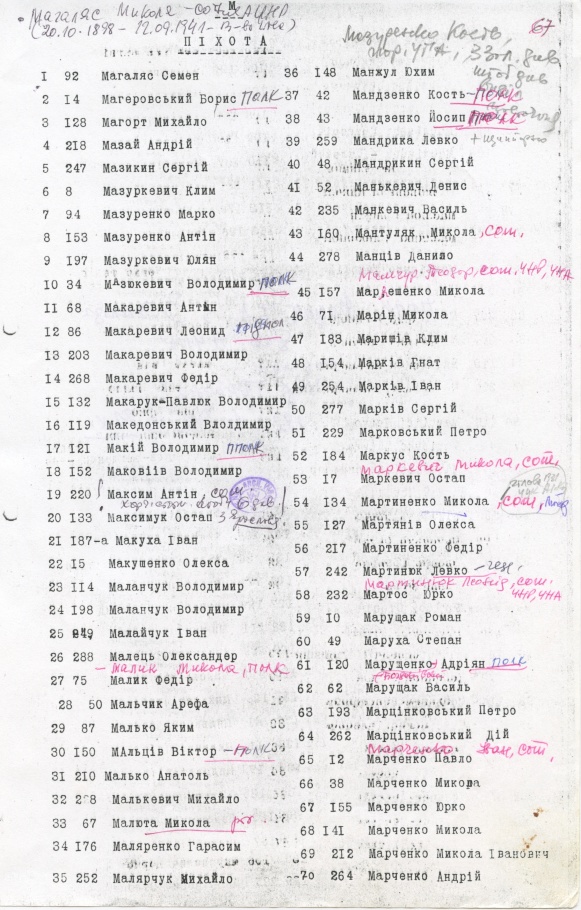 М
Магаляс Микола - сот. АУНР
(20.10.1898 - 12.09.1941 -
67
ПІХОТА
Мазуренко Кость,
хор. УПА, 3 Зал. див
штаб див
I 92 Магаляс Семен
2 I4 Магеровський Борис ПОЛК
3 I28 Магорт Михайло
4 2I8 Мазай Андрій
5 247 Мазикин Сергій
6 8 Мазуркевич Клим
7 94 Мазуренко Марко
8 I53 Мазуренко Антін
9 I97 Мазуркевич Юлян
I0 34 Мазюкевич Володимир ПОЛК
II 68 Макаревич Антін
I2 86 Макаревич Леонид підпол
I3 203 Макаревич Володимир
I4 268 Макаревич Федір
I5 I32 Макарук-Павлюк Володимир
I6 II9 Македонський Влолдимир
I7 I2I Макій Володимир ППОЛК
I8 I52 Маковіів Володимир
I9 220 Максим Антін, сот
20 I33 Максимук Остап
2I I87-а Макуха Іван
22 I5 Макушенко Олекса
23 II4 Маланчук Володимир
24 I98 Маланчук Володимир
25 249 Малайчук Іван
26 288 Малець Олександер
- Малик Микола, ПОЛК
27 75 Малик Федір
28 50 Мальчик Арефа
29 87 Малько Яким
30 I50 МАльців Віктор - ПОЛК
3I 2I0 Малько Анатоль
32 228 Малькевич Михайло
33 67 Малюта Микола
34 I76 Маляренко Герасим
35 252 Малярчук Михайло
36 I48 Манхул Юхим
37 42 Мандзенко Кость - ПОЛК
38 43 Мандзенко Йосип ПОЛК
39 259 Мандрика Левко
40 48 Мандрикин Сергій
4I 52 Манькевич Денис
42 235 Манкевич Василь
43 I60 Мантуляк Микола, сот.
44 278 Манців Данило
Теодор, сот. ЧНР, ЧНА
45 I57 Марлешенко Микола
46 7I Марін Микола
47 I83 Маришів Клим
48 I54 Марків Гнат
49 254 Марків Іван
50 277 Марків Сергій
5I 229 Марковський Петро
52 I84 Маркус Кость
Маркевич Микола, сот.
53 I7 Маркевич Остап
54 I34 Мартиненко Микола, сот,
55 I27 Мартянів Олекса
56 2I7 Мартиненко Федір
57 242 Мартинюк Левко - ген.
Мартинюк Леонід, сот. ЧНР, ЧНА
58 232 Мартос Юрко
59 I0 Марущак Роман
60 49 Маруха Степан
6I I20 Марущенко Адріян ПОЛК
62 62 Марущак Василь
63 I93 Марцінковський Петро
64 262 Марцінковський Дій
Марченко Іван, сот.
65 I2 Марченко Павло
66 38 Марченко Микора
67 I55 Марченко Юрко
68 I4I Марченко Микола
69 2I2 Марченко Микола Іванович
70 264 Марченко Андрій